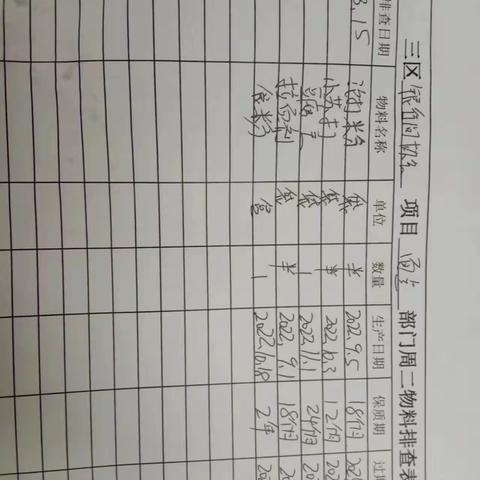 三区 项目 部门周二物料排查表
排查日期 物料名称 单位 数量 生产日期 保质期 过期
3.15 泡打粉 袋 半 2022.9.5 18个月 202
小苏打 袋 半 2022.10.3 12个月 202
袋 1 2022.11.1 24个月 20
袋 半 2022.9.1 18个月 2
食粉 盒 1 2022.10.18 2年 20